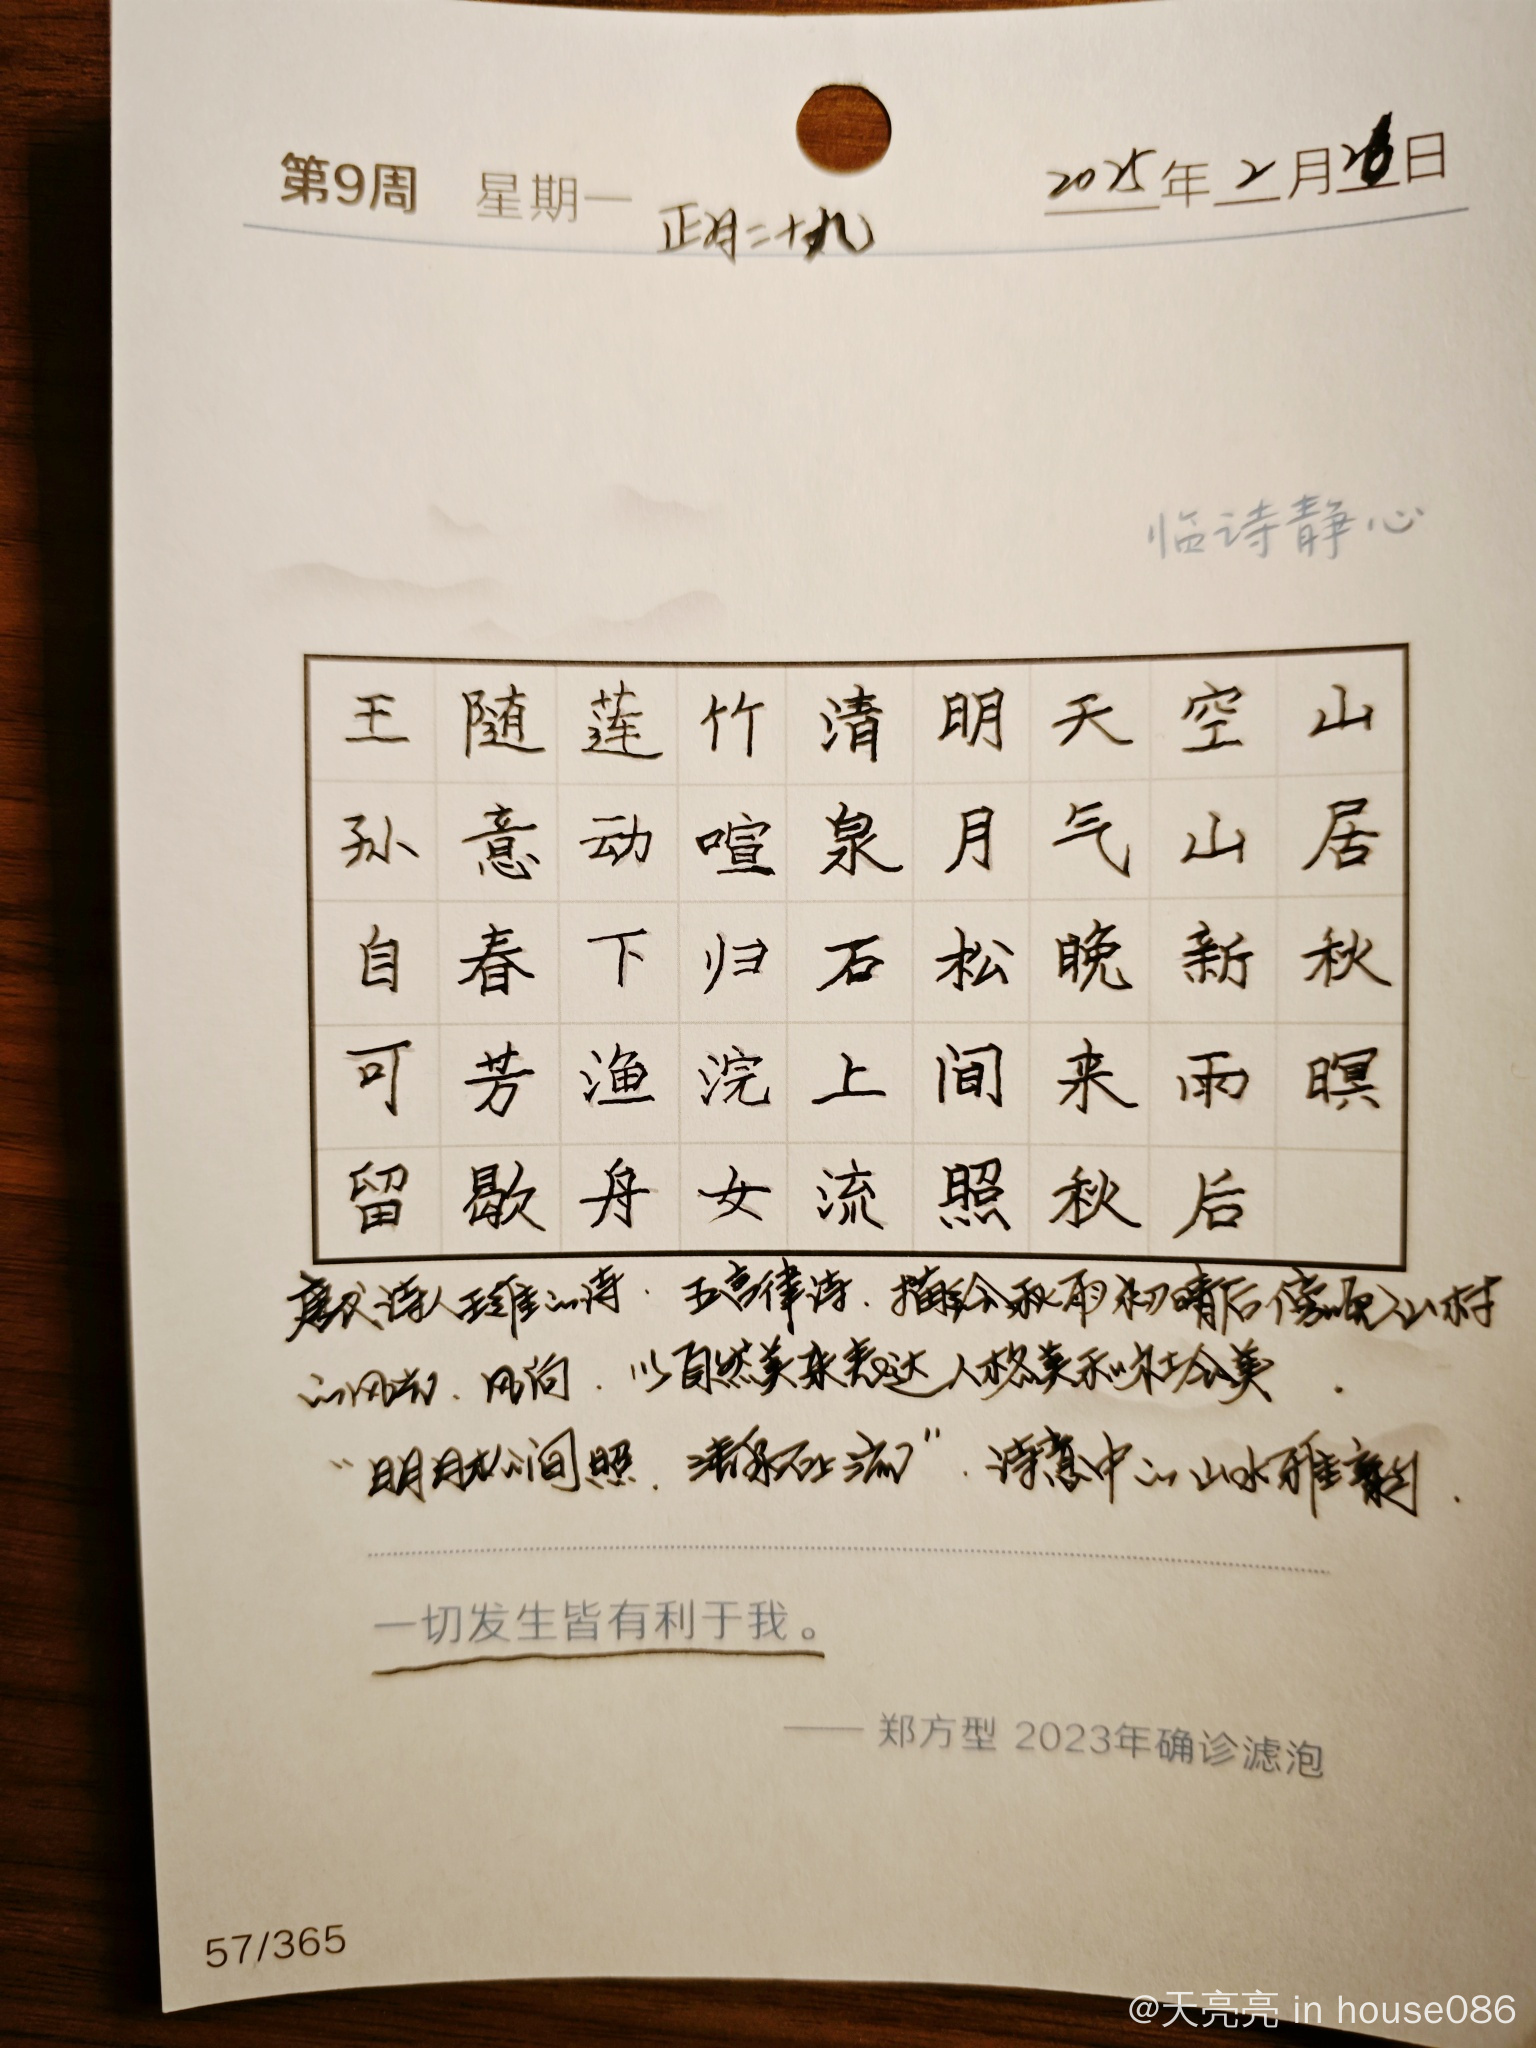 第9周 星期一 正月二十九 2025年2月26日
临诗静心
山居秋暝
空山新雨后
天气晚来秋
明月松间照
清泉石上流
竹喧归浣女
莲动下渔舟
随意春芳歇
王孙自可留
唐代诗人王维的诗.五言律诗.描绘秋雨初晴后傍晚山村
的风光.风俗.以自然美来表达人格美和社会美.
“明月松间照.清泉石上流”.诗意中的山水
一切发生皆有利于我。
—— 郑方型 2023年确诊滤泡
57/365
@天亮亮 in house086